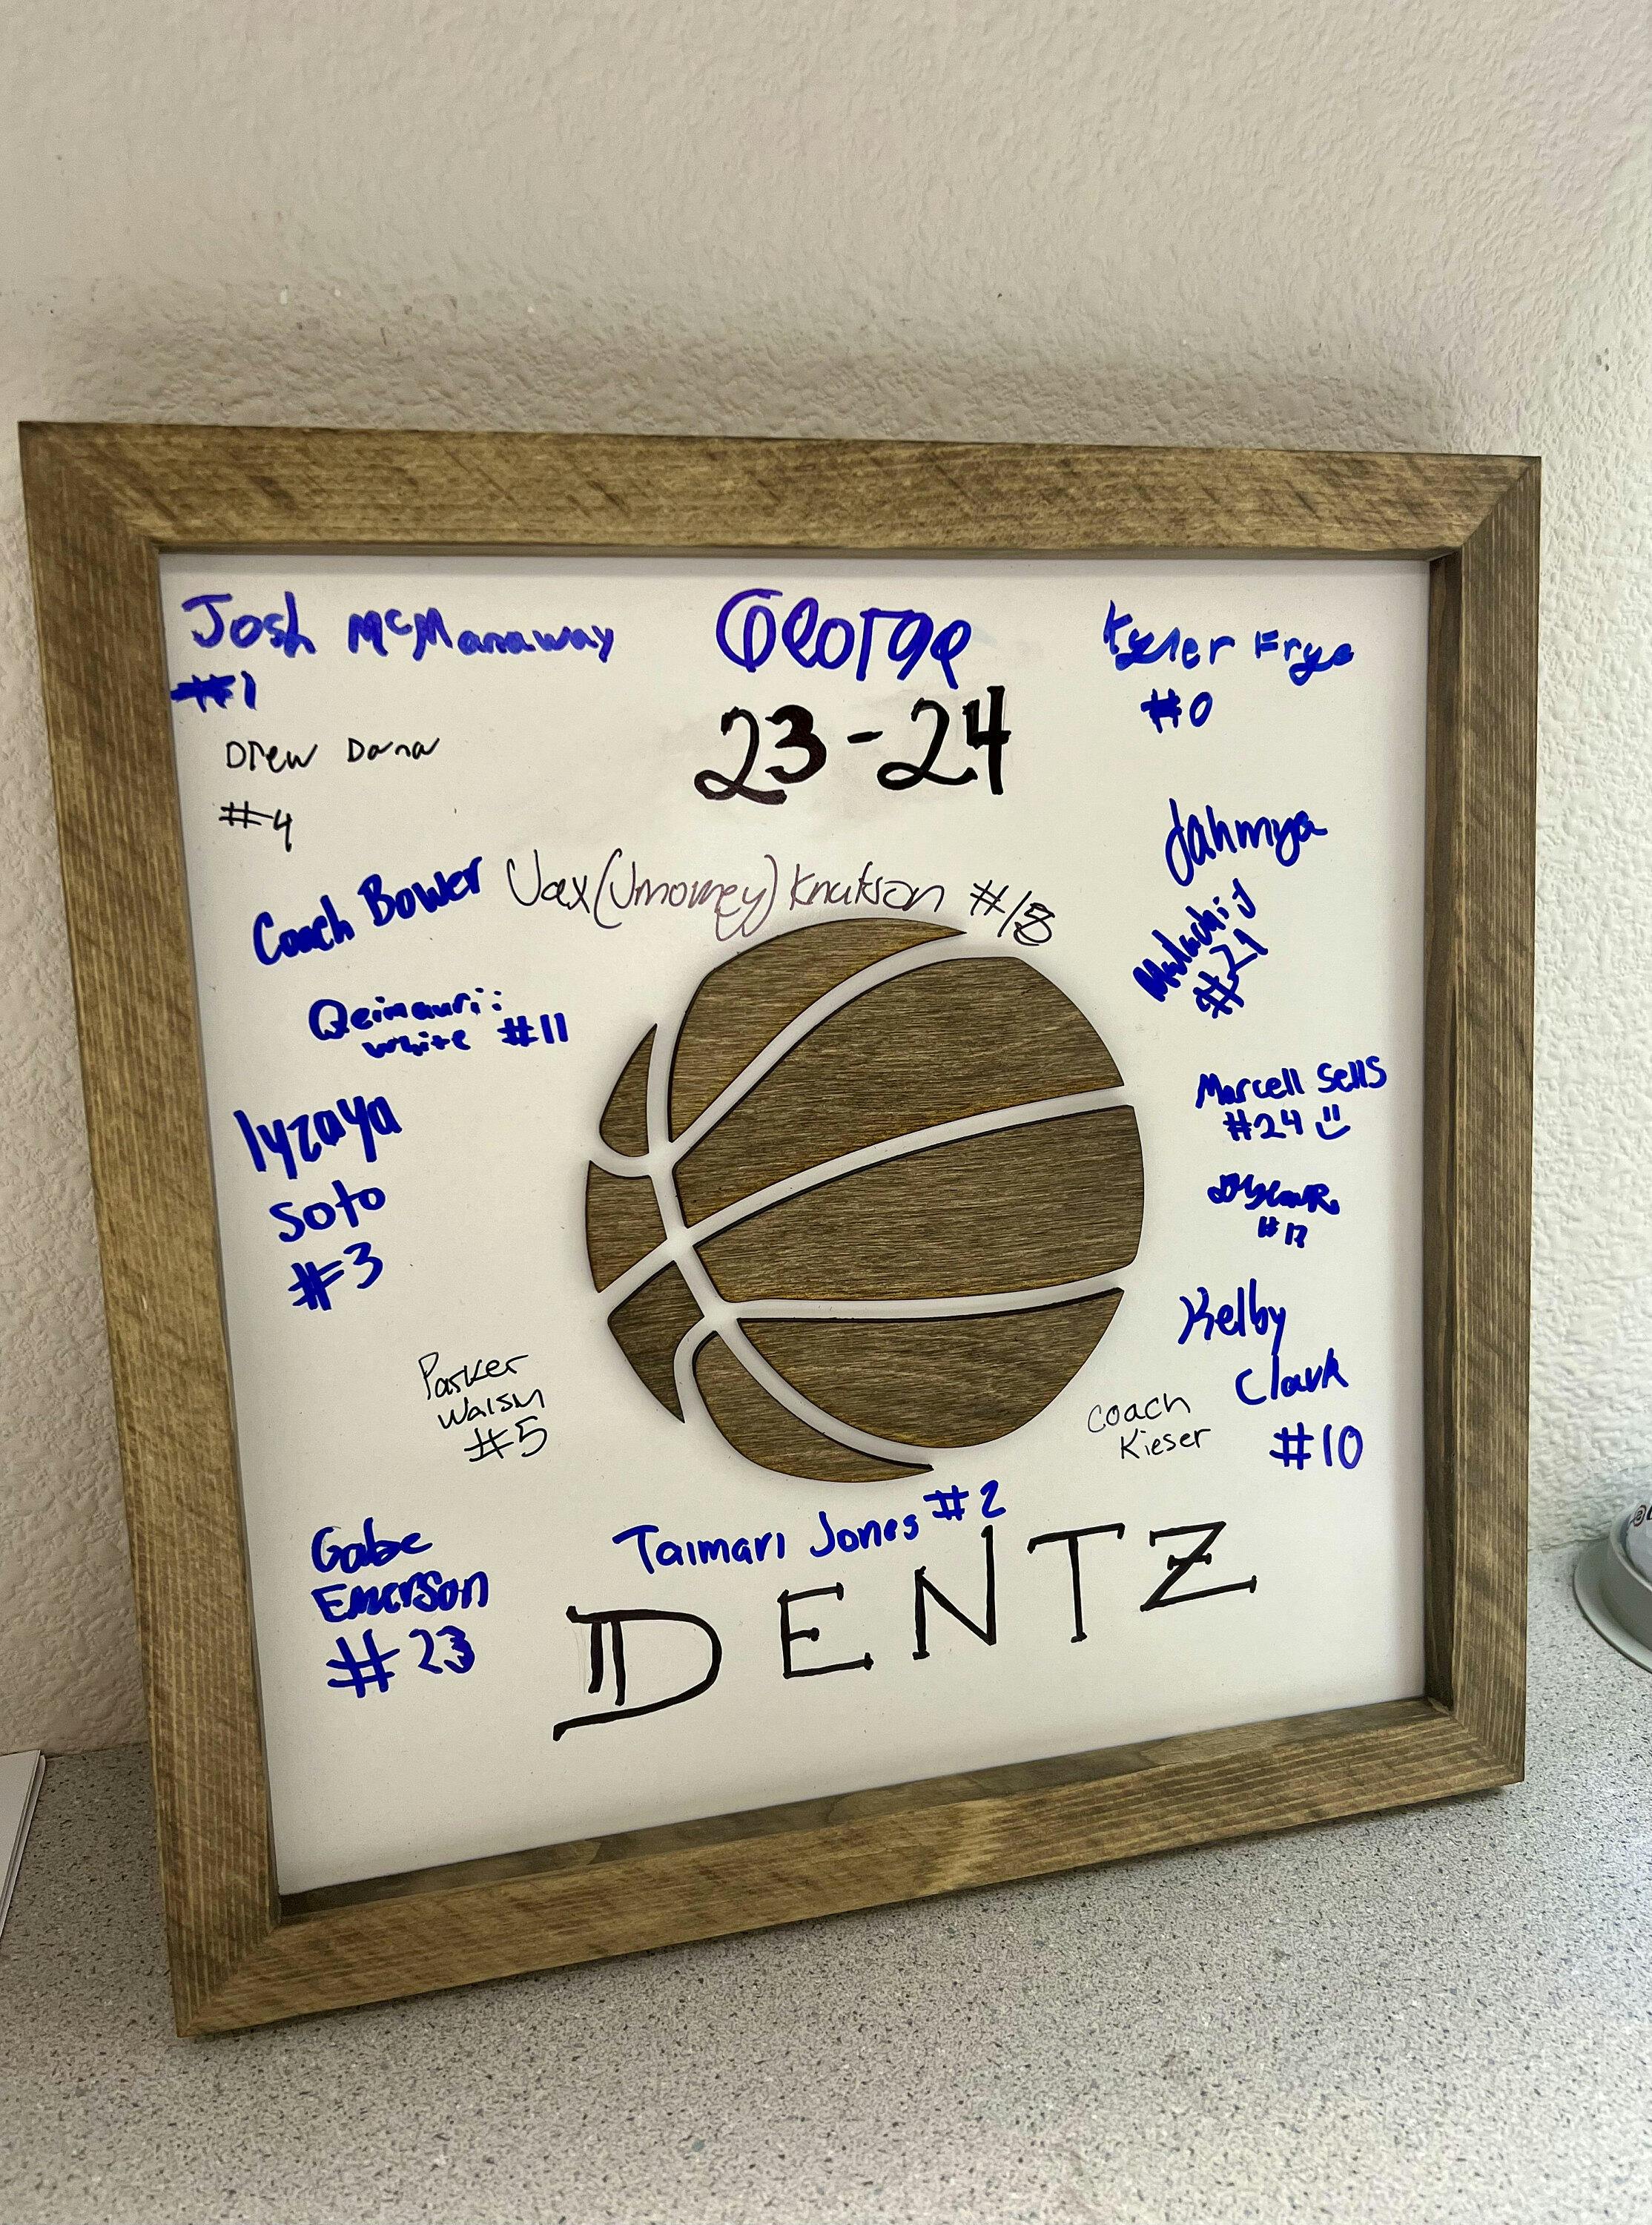 Josh McManaway
#1
George
23-24
Kyler Frye
#0
Drew Dana
#4
Coach Bower
Jax (Jmoney) Knutson #13
Jahmya
Malachi J
#21
Qeimauri
White #11
Iyzaya
Soto
#3
Marcell Sells
#24
Kelby
Clark
#10
Parker
Walsh
#5
Coach
Kieser
Gabe
Emerson
#23
Taimari Jones #2
DENTZ